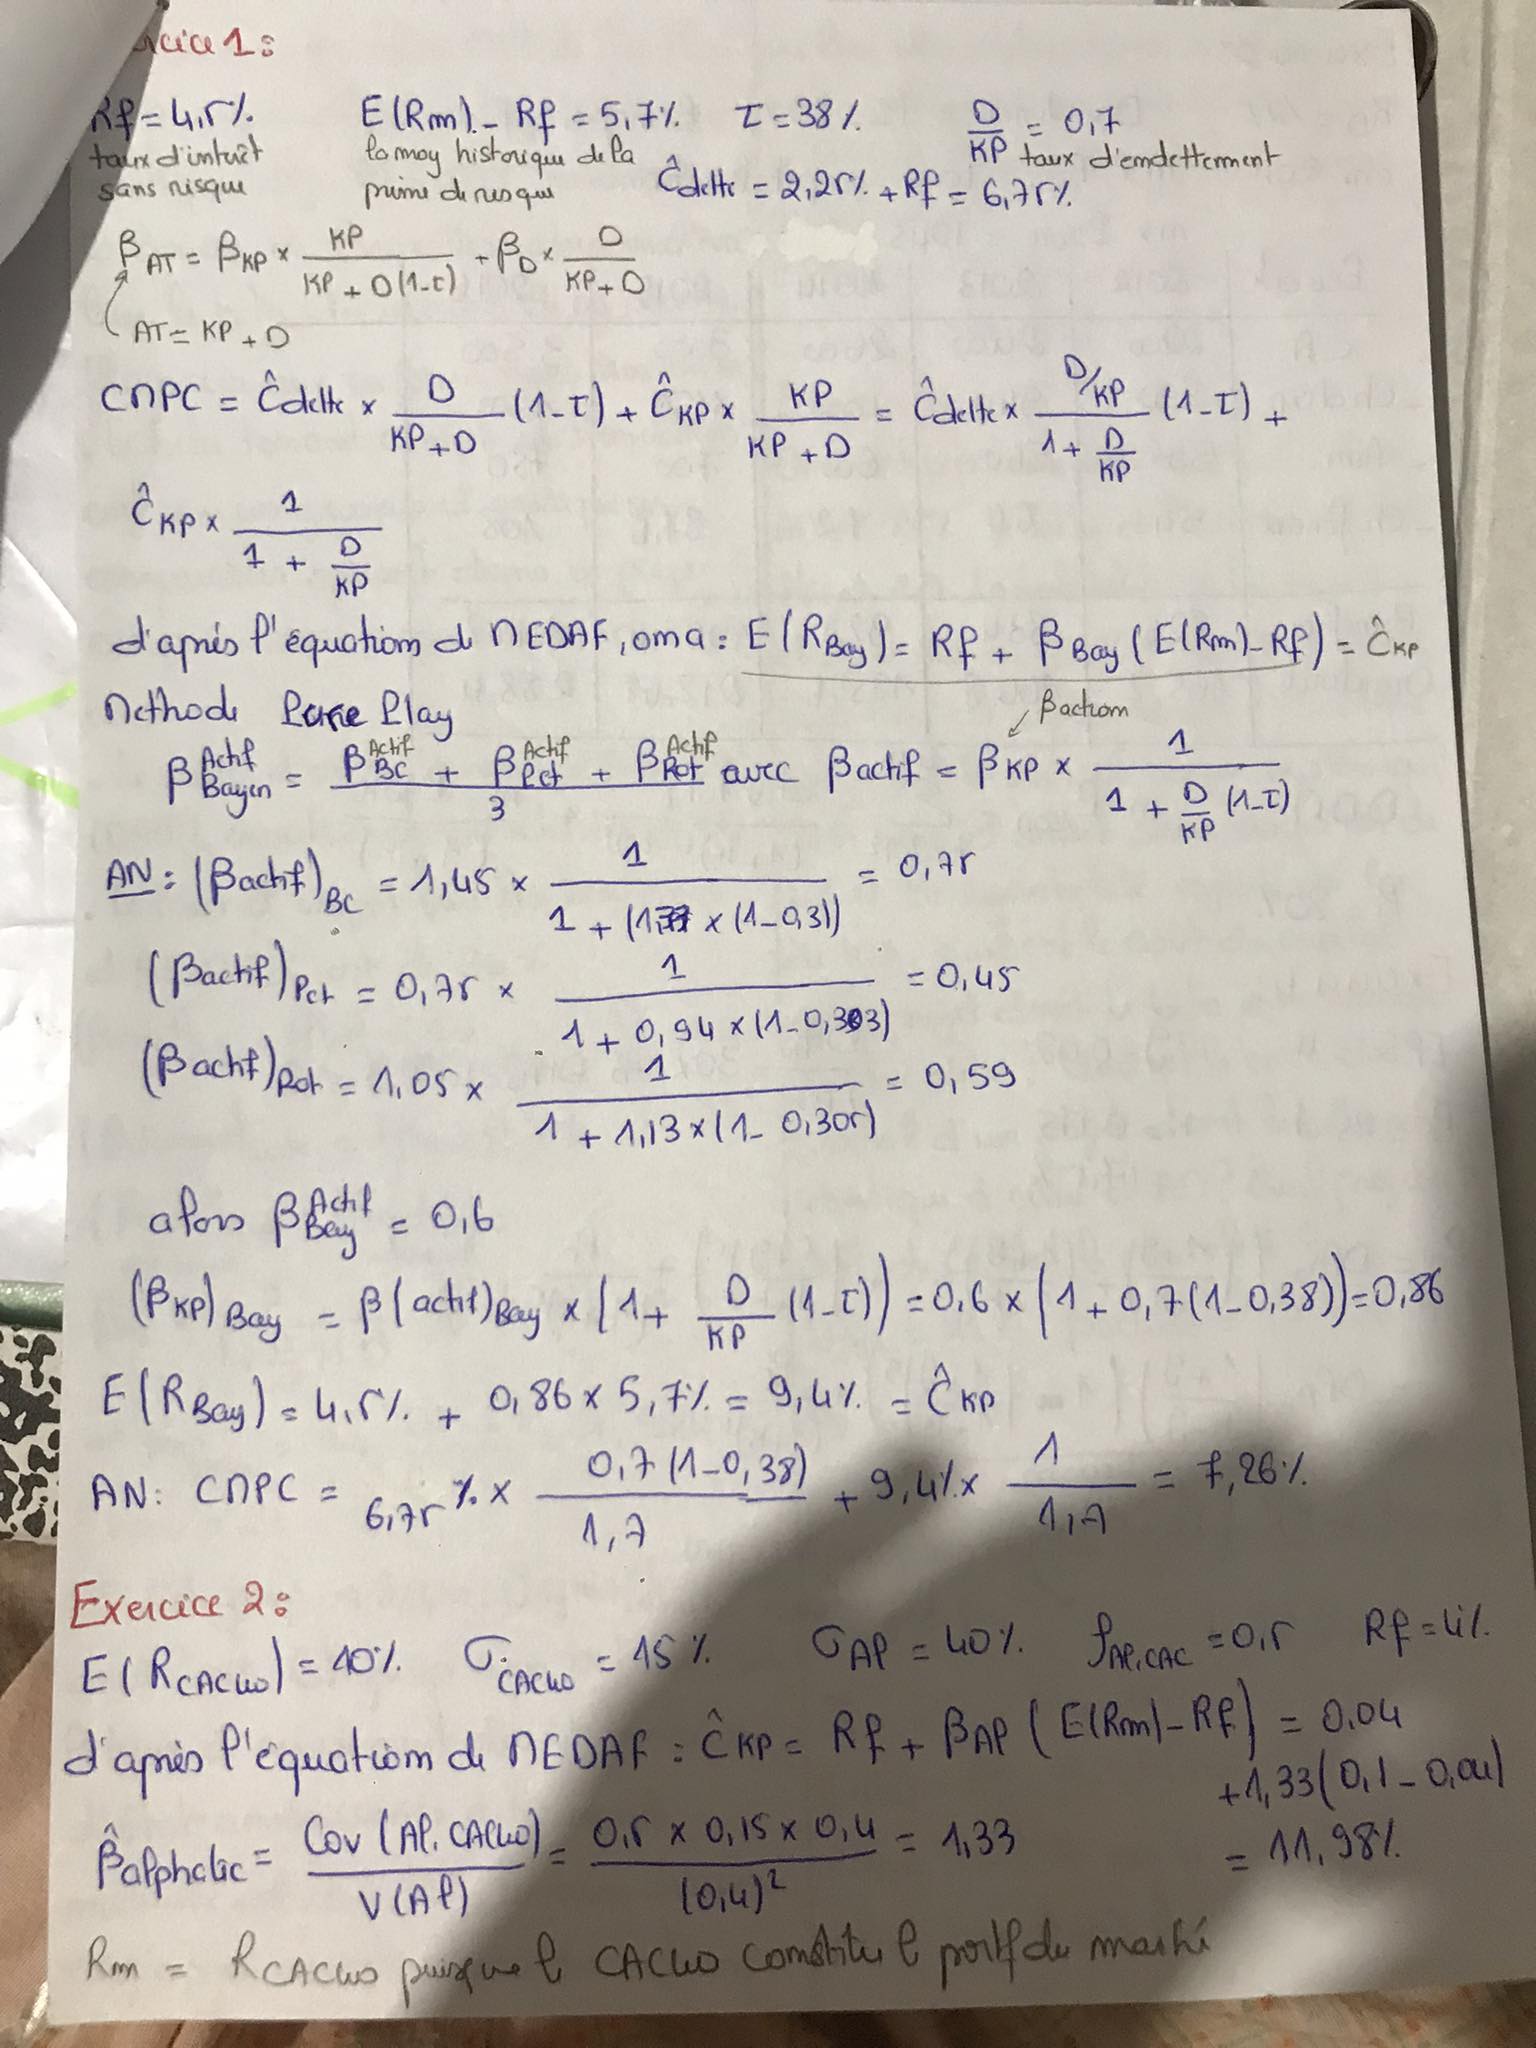 cice 1:
Rf = 4,5% E(Rm) - Rf = 5,7% τ = 38% D/KP = 0,7
taux d'intérêt la moy historique de la taux d'endettement
sans risque prime de risque Ĉdette = 2,25% + Rf = 6,75%
βAT = βKP × KP/(KP + D(1-τ)) + βD × D/(KP+D)
AT = KP + D
CMPC = Ĉdette × D/(KP+D) (1-τ) + ĈKP × KP/(KP+D) = Ĉdette × (D/KP)/(1 + D/KP) (1-τ) +
ĈKP × 1/(1 + D/KP)
d'après l'équation du MEDAF, on a : E(RBay) = Rf + βBay (E(Rm) - Rf) = ĈKP
Méthode Pure Play
βaction
β Actif Bayen = (β Actif BC + β Actif Pct + β Actif Rot)/3 avec βactif = βKP × 1/(1 + D/KP (1-τ))
AN : (βactif)BC = 1,45 × 1/(1 + (1,37 × (1-0,31)) = 0,75
(βactif)Pct = 0,75 × 1/(1 + 0,94 × (1-0,303) = 0,45
(βactif)Rot = 1,05 × 1/(1 + 1,13 × (1-0,305) = 0,59
alors β Actif Bay = 0,6
(βKP)Bay = β(actif)Bay × (1 + D/KP (1-τ)) = 0,6 × (1 + 0,7(1-0,38)) = 0,86
E(RBay) = 4,5% + 0,86 × 5,7% = 9,4% = ĈKP
AN: CMPC = 6,75% × 0,7(1-0,38)/1,7 + 9,4% × 1/1,7 = 7,26%
Exercice 2:
E(RCAC40) = 10% σCAC40 = 15% σAP = 40% ρAP,CAC = 0,5 Rf = 4%
d'après l'équation du MEDAF : ĈKP = Rf + βAP (E(Rm) - Rf) = 0.04
+ 1,33 (0,1 - 0,04)
β̂alphatic = Cov(AP, CAC40)/V(AP) = 0,5 × 0,15 × 0,4/(0,4)² = 1,33
= 11,98%
Rm = RCAC40 puisque le CAC40 constitue le portf du marché